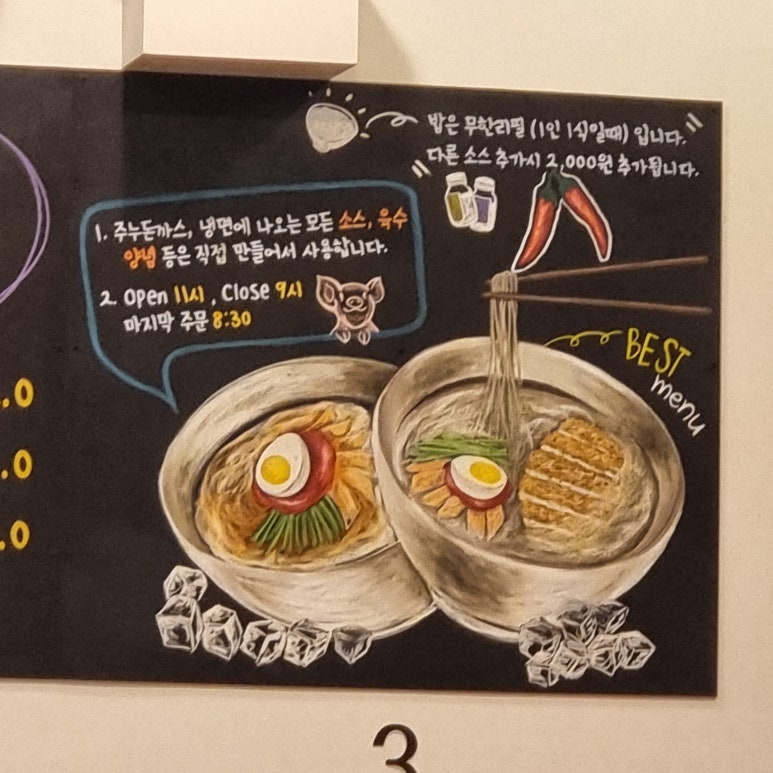 밥은 무한리필 (1인 1식일때) 입니다.
다른 소스 추가시 2,000원 추가됩니다.
1. 주누돈까스, 냉면에 나오는 모든 소스, 육수
양념 등은 직접 만들어서 사용합니다.
2. Open 11시, Close 9시
마지막 주문 8:30
BEST
menu
.0
.0
.0
3